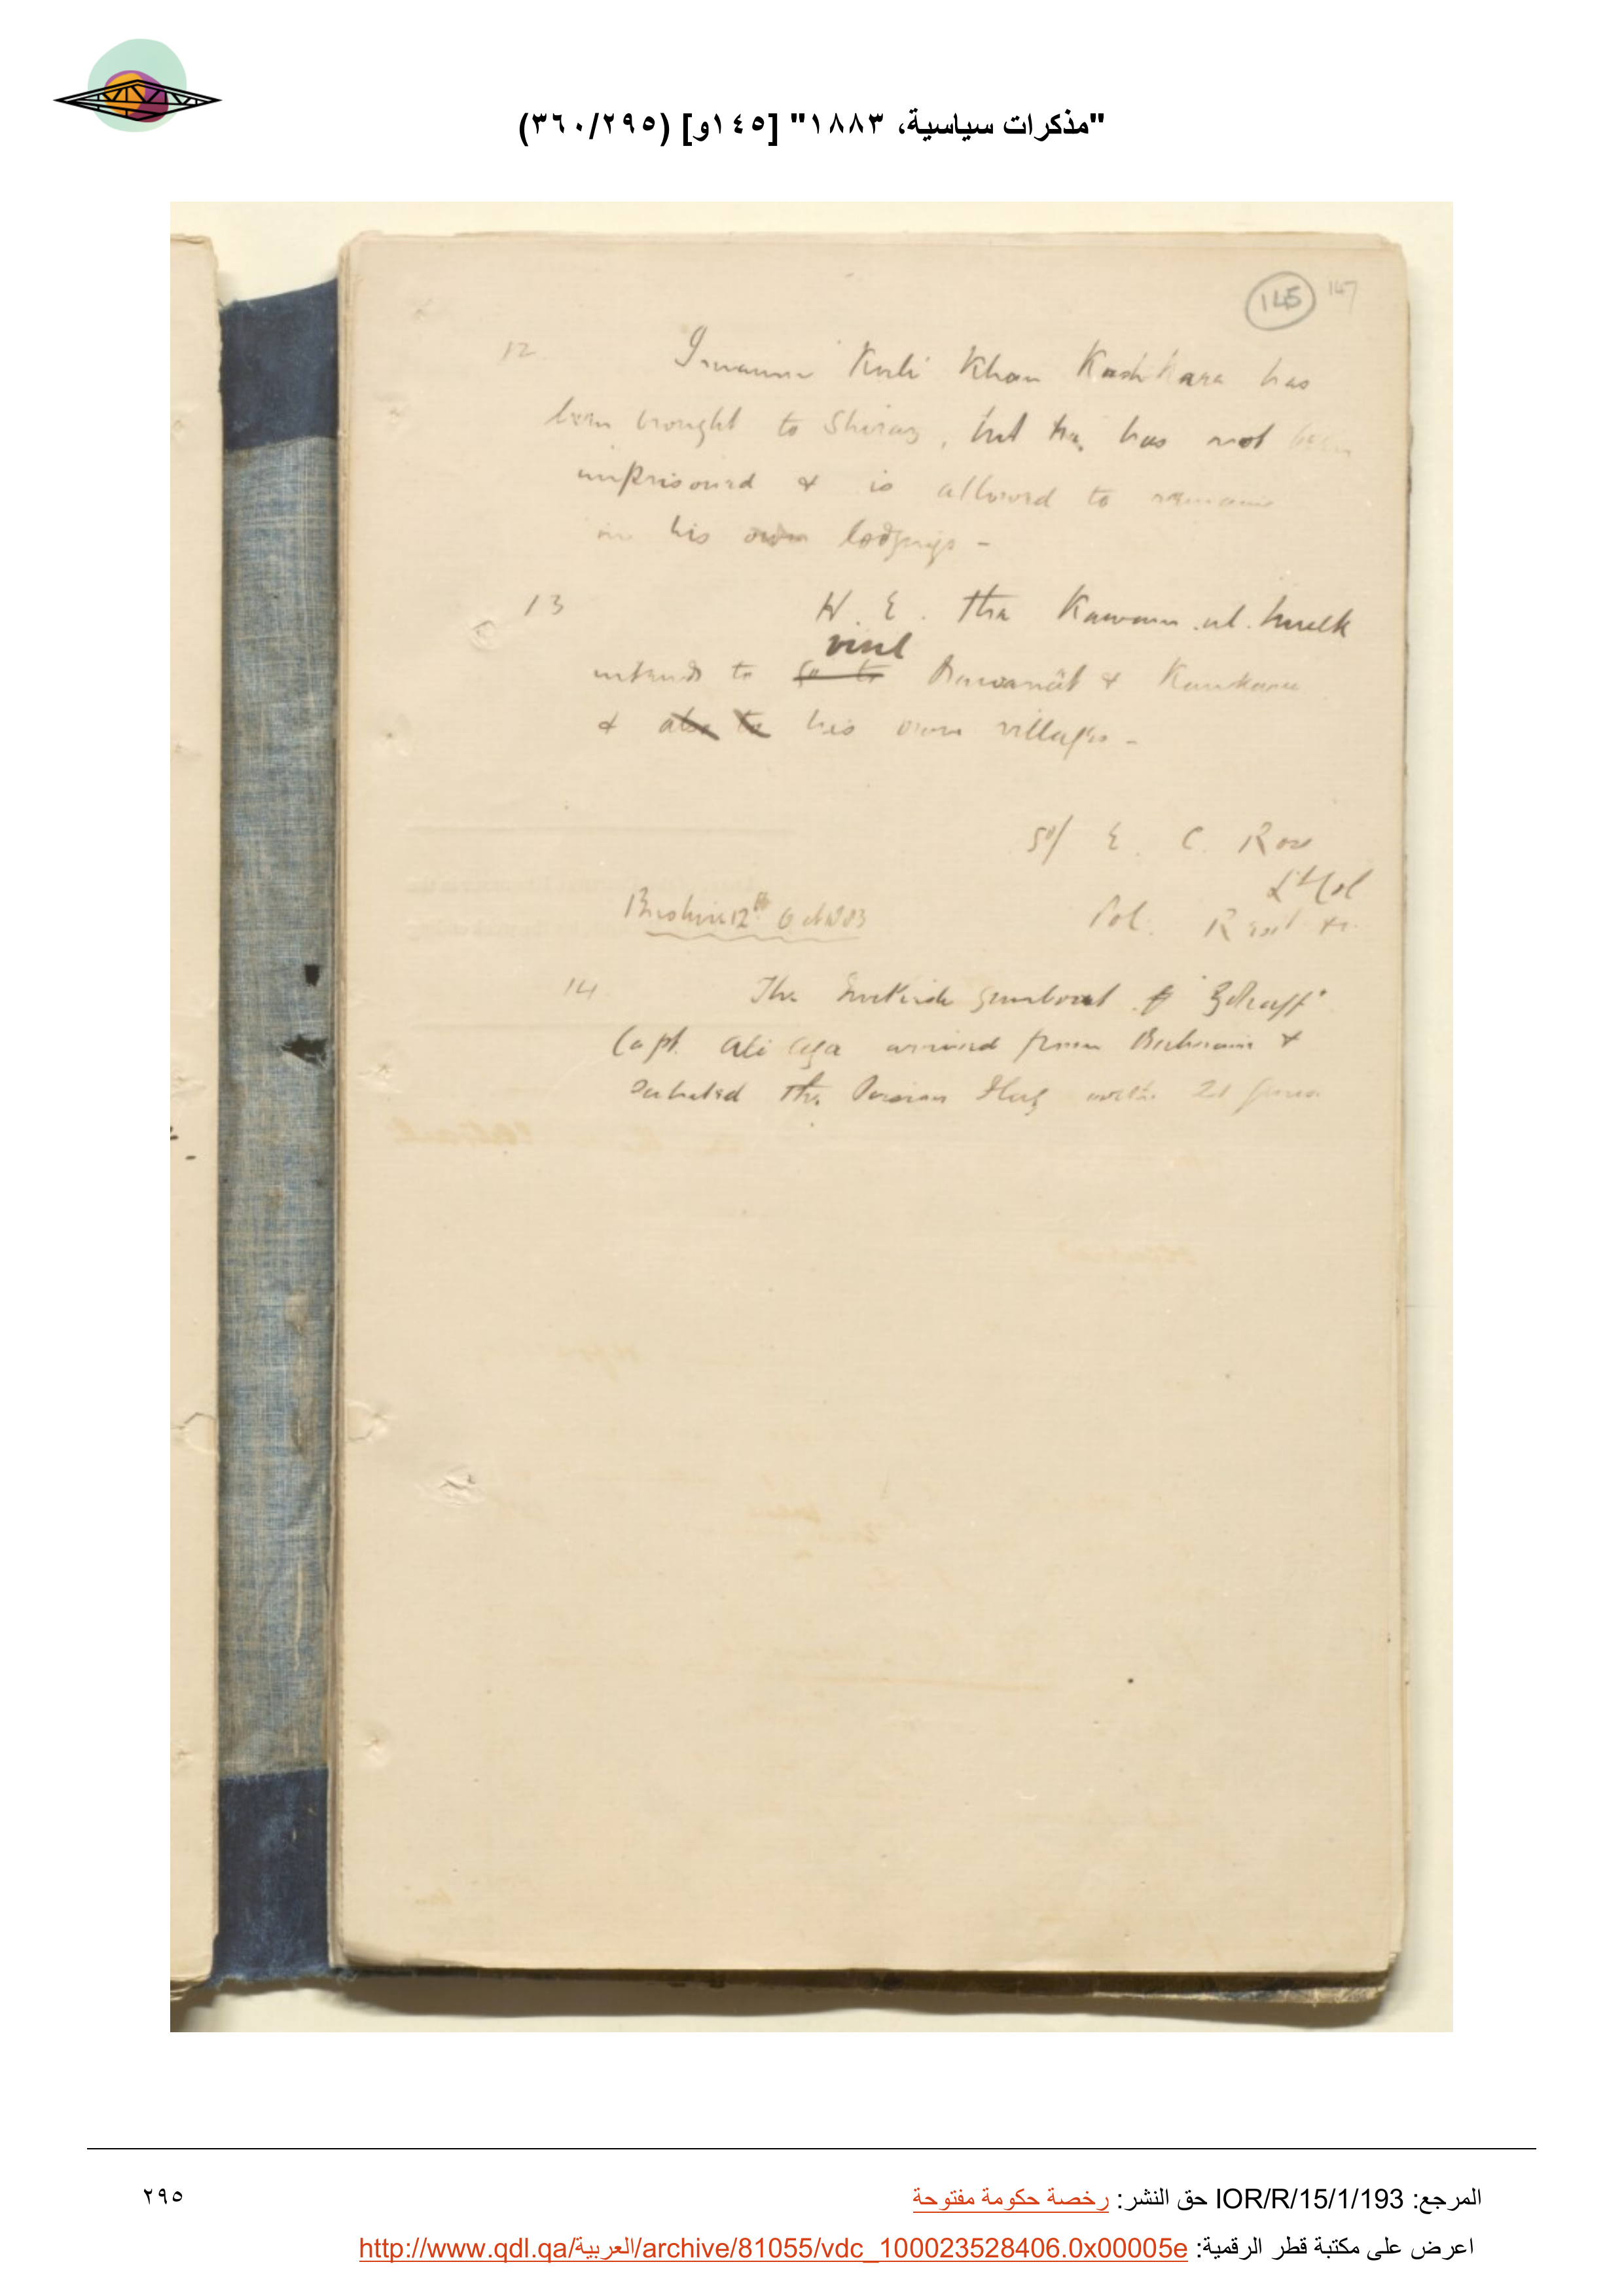 "مذكرات سياسية، ١٨٨٣" [١٤٥و] (٣٦٠/٢٩٥)
145 147
12 Kuli Khan has
been brought to Shiraz, but he has not been
imprisoned & is allowed to remain
in his own lodgings -
13 H. E. The Kawam ul mulk
visit
intends to go to Bawanat &
& also to his own villages -
Sd/ E. C. Ross
Lt Col
Bushire 12th Oct 1883 Pol. Resdt
14 The Turkish gunboat
Capt. Ali Aga arrived from Bahrain &
saluted the Persian Flag with 21 guns
المرجع: IOR/R/15/1/193 حق النشر: رخصة حكومة مفتوحة
٢٩٥
اعرض على مكتبة قطر الرقمية: http://www.qdl.qa/العربية/archive/81055/vdc_100023528406.0x00005e